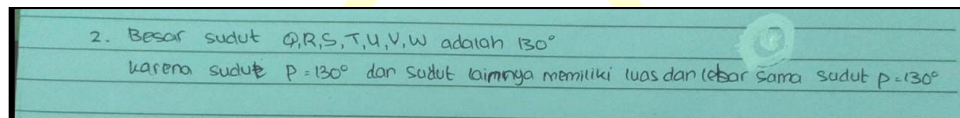 2. Besar sudut Q,R,S,T,U,V,W adalah 130°
karena sudut P = 130° dan sudut lainnya memiliki luas dan lebar sama sudut p = 130°